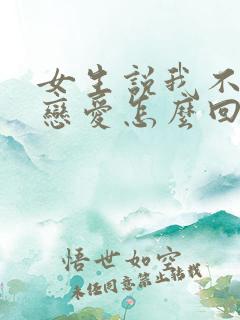 女生説我不
戀愛怎麼回
悟世如空
未经同意禁止转载